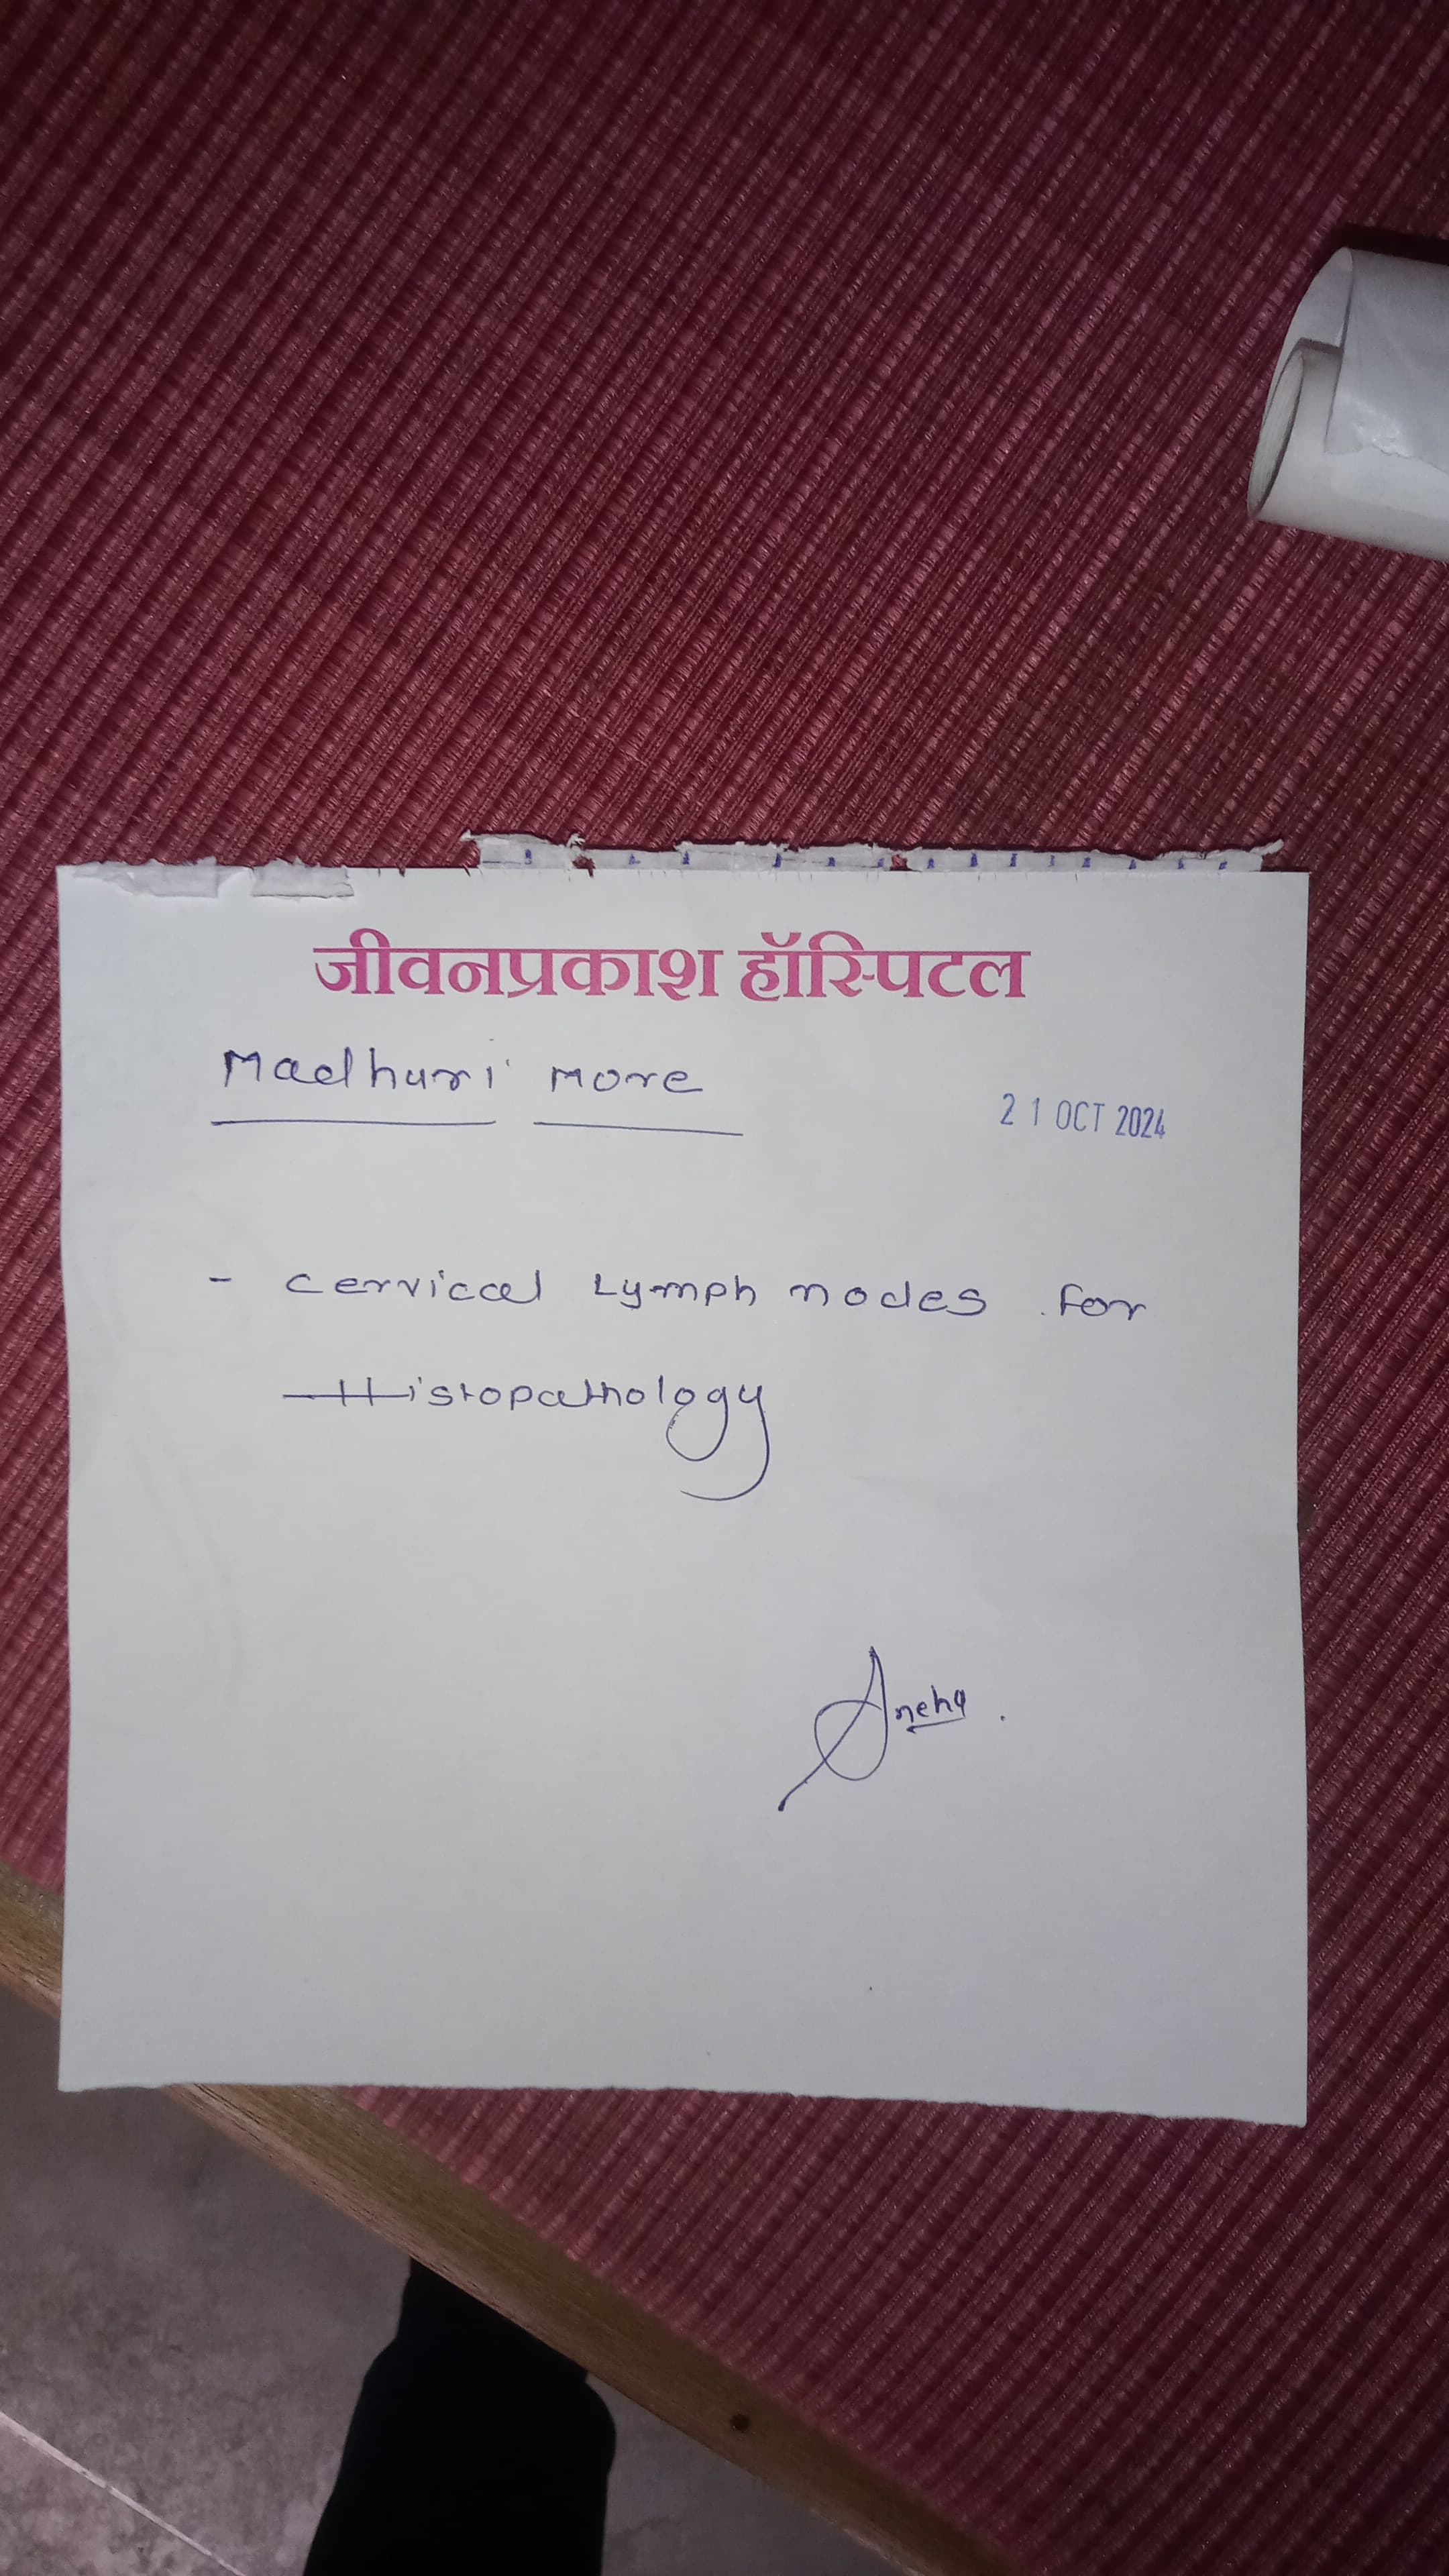 जीवनप्रकाश हॉस्पिटल
Madhuri more
21 OCT 2024
- cervical Lymph nodes for
Histopathology
Sneha.